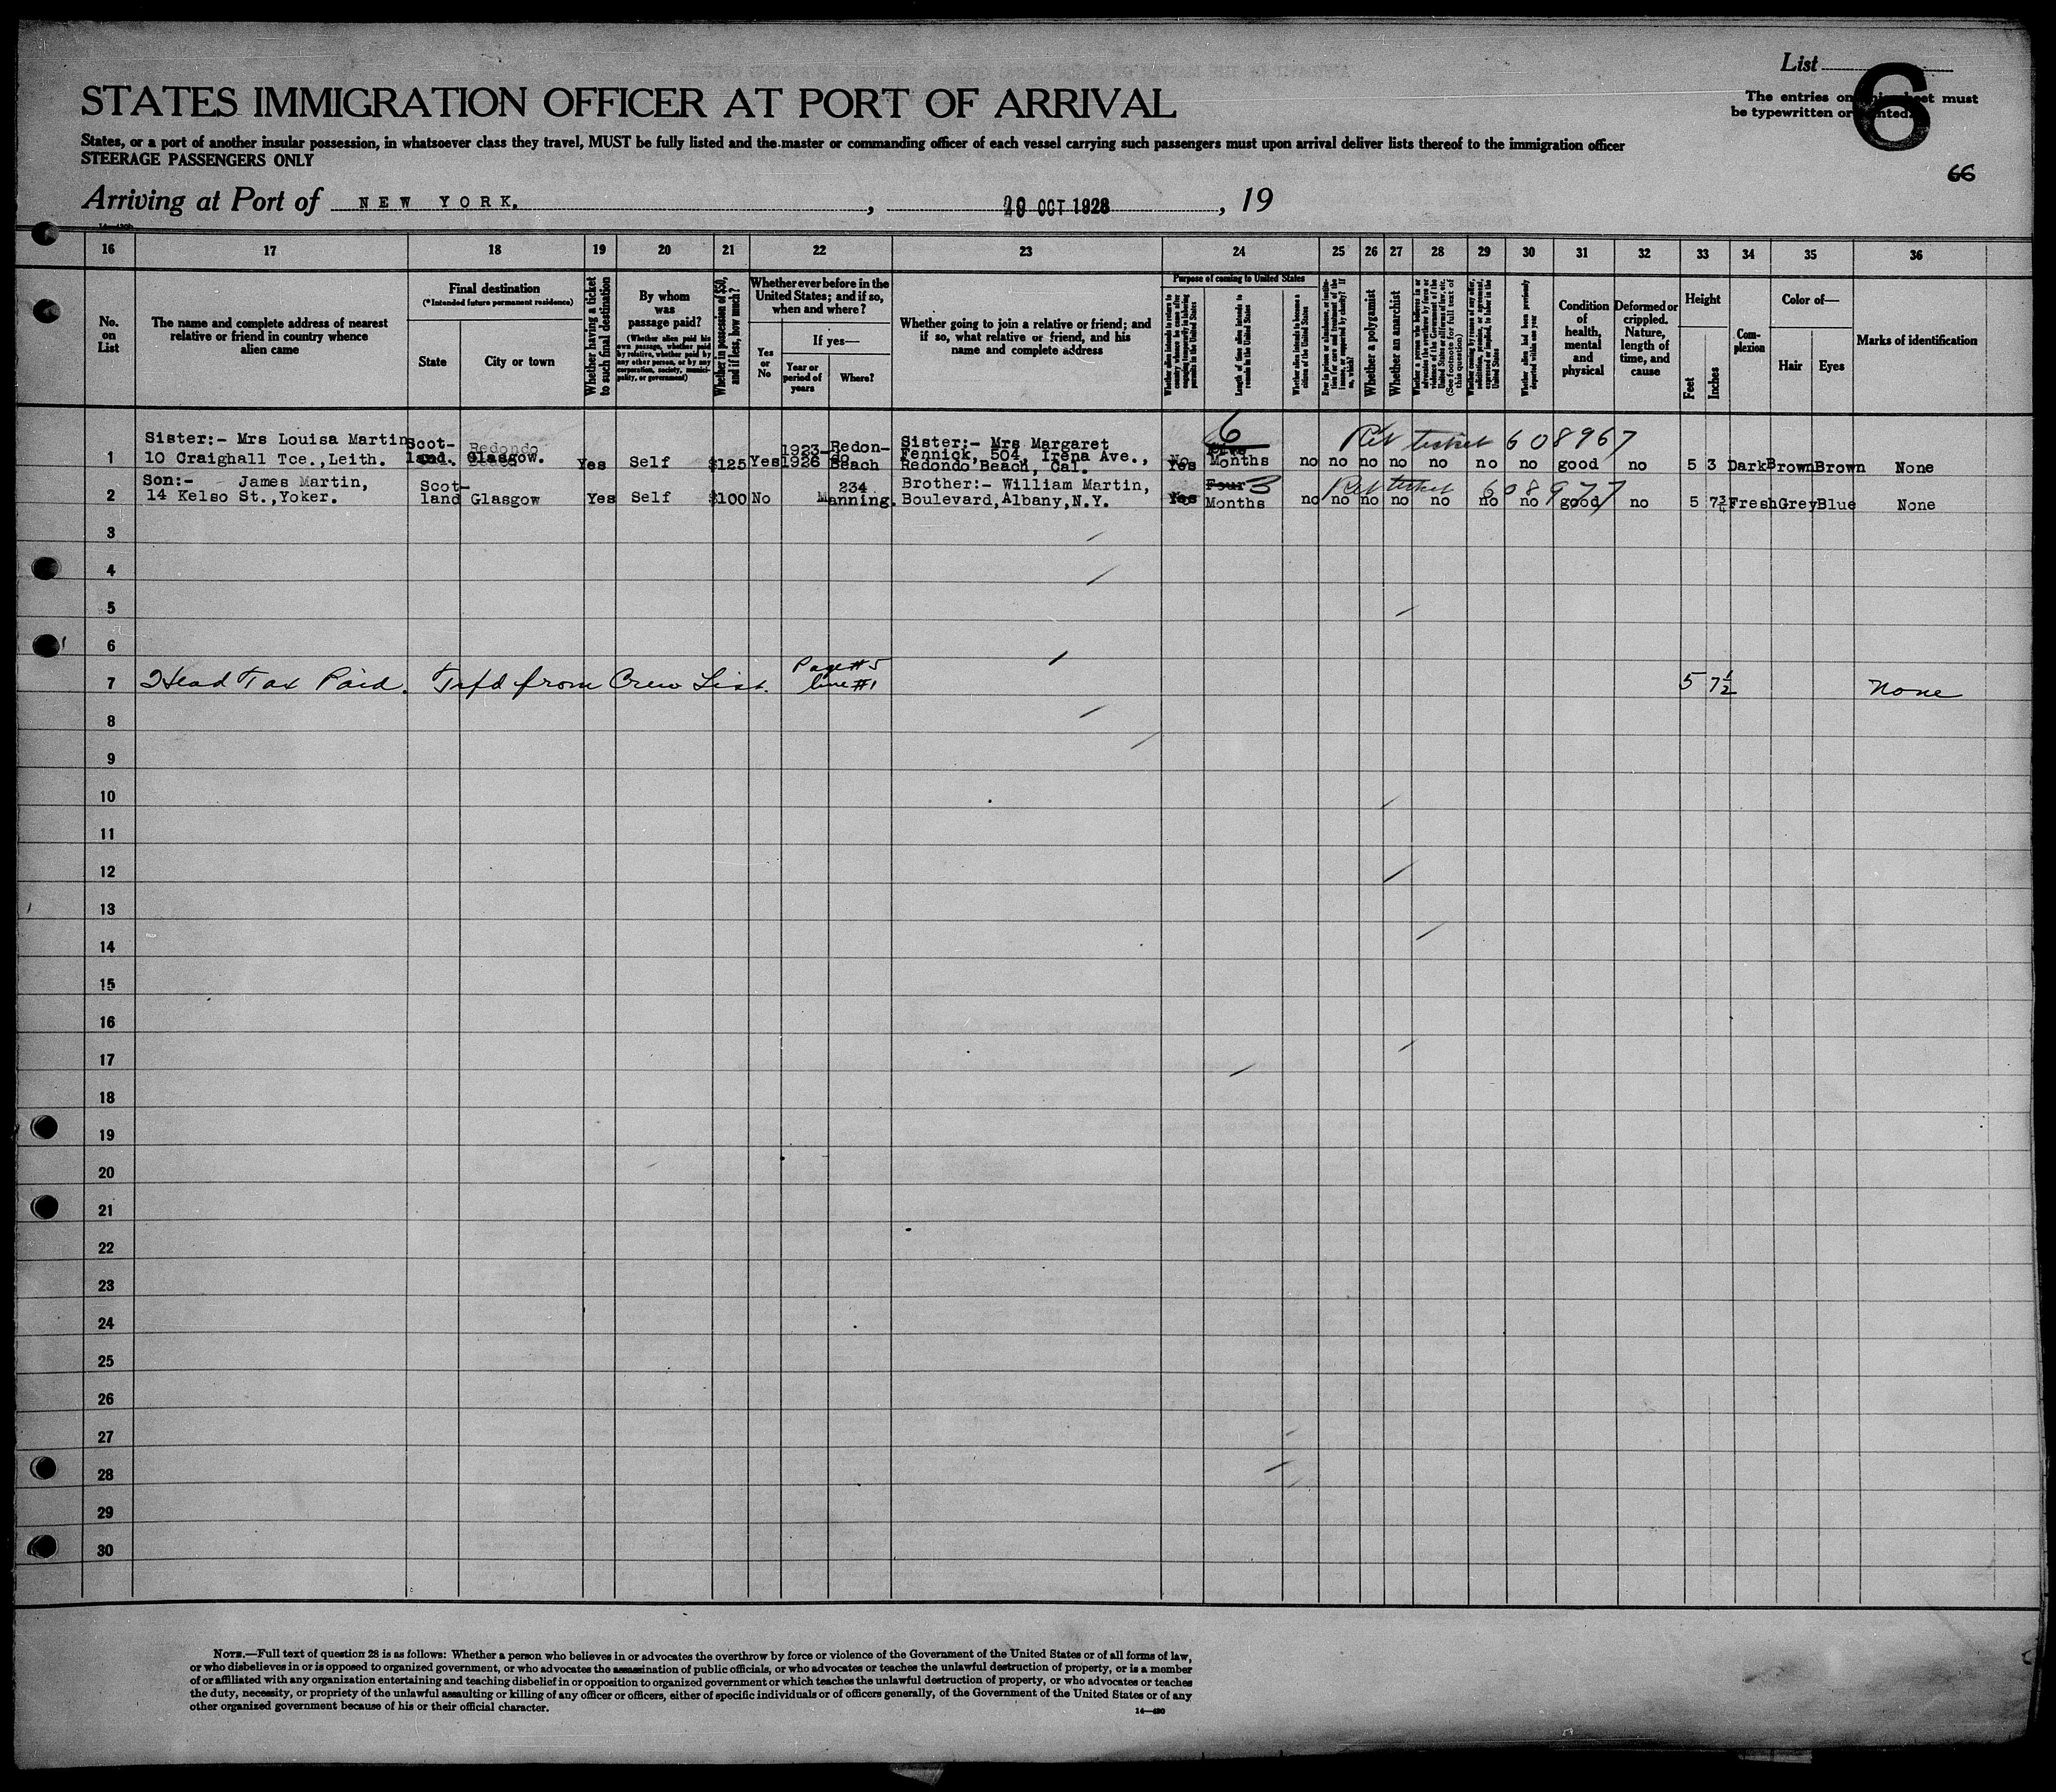 List
6
The entries on this sheet must
be typewritten or printed.
66
STATES IMMIGRATION OFFICER AT PORT OF ARRIVAL
States, or a port of another insular possession, in whatsoever class they travel, MUST be fully listed and the master or commanding officer of each vessel carrying such passengers must upon arrival deliver lists thereof to the immigration officer
STEERAGE PASSENGERS ONLY
Arriving at Port of NEW YORK. , 29 OCT 1928 , 19
16 17 18 19 20 21 22 23 24 25 26 27 28 29 30 31 32 33 34 35 36
No. on List
The name and complete address of nearest
relative or friend in country whence
alien came
Final destination
(*Intended future permanent residence)
State
City or town
Whether having a ticket
to such final destination
By whom
was
passage paid?
(Whether alien paid his
own passage, whether paid
by relative, whether paid by
any other person, or by any
corporation, society, munici-
pality, or government)
Whether in possession of $50,
and if less, how much?
Whether ever before in the
United States; and if so,
when and where?
Yes
or
No
If yes—
Year or
period of
years
Where?
Whether going to join a relative or friend; and
if so, what relative or friend, and his
name and complete address
Purpose of coming to United States
Length of time alien intends to
remain in the United States
Whether alien intends to become a
citizen of the United States
Whether a polygamist
Whether an anarchist
(See footnote for full text of
this question)
Whether alien had been previously
deported within one year
Condition
of
health,
mental
and
physical
Deformed or
crippled.
Nature,
length of
time, and
cause
Height
Feet
Inches
Com-
plexion
Color of—
Hair
Eyes
Marks of identification
1 Sister:- Mrs Louisa Martin
10 Craighall Tce.,Leith.
Scot-
land.
Redondo
Glasgow.
Yes Self $125 Yes
1923-
1926
Redon-
do
Beach
Sister:- Mrs Margaret
Fennick, 504, Irena Ave.,
Redondo Beach, Cal.
No
Yes
6
Five
Months
Ret ticket 608967
no no no no no no no good no 5 3 Dark Brown Brown None
2 Son:- James Martin,
14 Kelso St.,Yoker.
Scot-
land
Glasgow Yes Self $100 No
234
Manning.
Brother:- William Martin,
Boulevard,Albany,N.Y.
Yes
Four 3
Months
Ret ticket 608977
no no no no no no no good no 5 7¾ Fresh Grey Blue None
3
4
5
6
7 Head Tax Paid. Trfd from Crew List.
Page #5
line #1
5 7½ None
8
9
10
11
12
13
14
15
16
17
18
19
20
21
22
23
24
25
26
27
28
29
30
NOTE.—Full text of question 28 is as follows: Whether a person who believes in or advocates the overthrow by force or violence of the Government of the United States or of all forms of law,
or who disbelieves in or is opposed to organized government, or who advocates the assassination of public officials, or who advocates or teaches the unlawful destruction of property, or is a member
of or affiliated with any organization entertaining and teaching disbelief in or opposition to organized government or which teaches the unlawful destruction of property, or who advocates or teaches
the duty, necessity, or propriety of the unlawful assaulting or killing of any officer or officers, either of specific individuals or of officers generally, of the Government of the United States or of any
other organized government because of his or their official character.
14—430